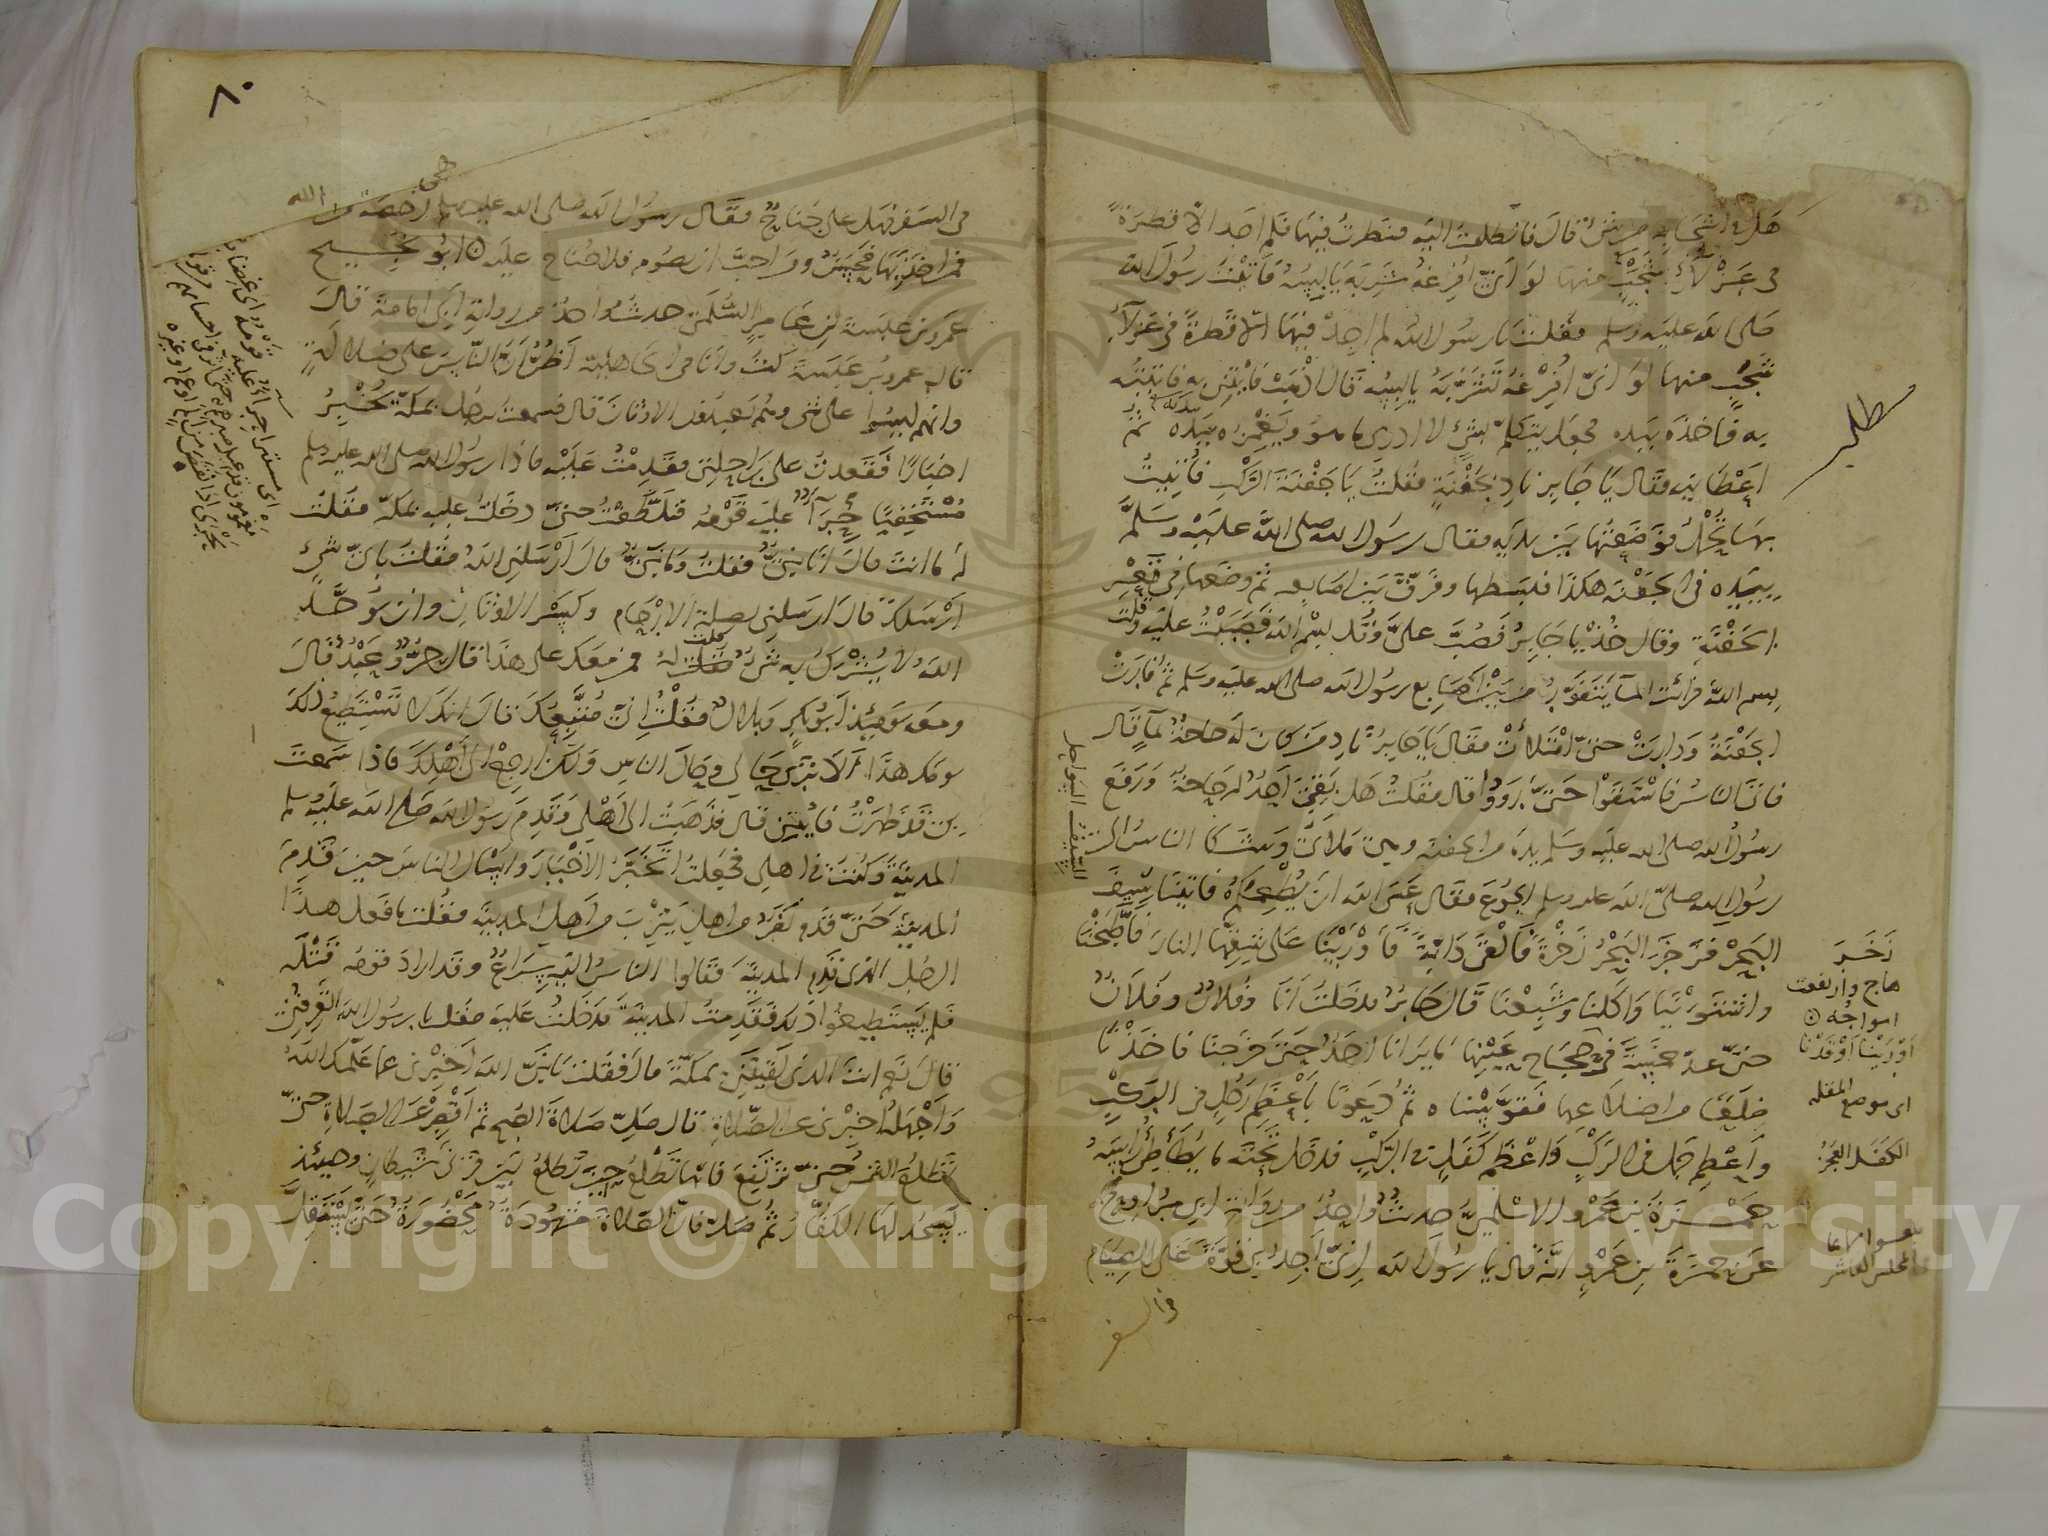 هل في اشجابه من شئ قال فانطلقت اليه فنظرت فيها فلم اجد الا قطرة
في عزلاء شجب منها لو اني افرغه شربه يابسه فاتيت رسول الله
صلى الله عليه وسلم فقلت يا رسول الله لم اجد فيها الا قطرة في عزلاء
شجب منها لو اني افرغه لشربه يابسه قال اذهب فاتني به فاتيته
به فاخذه بيده فجعل يتكلم بشئ لا ادري ما هو ويغمزه بيده ثم
اعطانيه فقال يا جابر ناد بجفنة فقلت يا جفنة الركب فاتيت
بها تحمل فوضعتها بين يديه فقال رسول الله صلى الله عليه وسلم
بيده في الجفنة هكذا فبسطها وفرق بين اصابعه ثم وضعها في قعر
الجفنة وقال خذ يا جابر فصب علي وقل بسم الله فصببت عليه وقلت
بسم الله فرأيت الماء يتفور من بين اصابع رسول الله صلى الله عليه وسلم ثم فارت
الجفنة ودارت حتى امتلأت فقال يا جابر ناد من كان له حاجة بماء قال
فاتى الناس فاستقوا حتى رووا قال فقلت هل بقي احد له حاجة ورفع
رسول الله صلى الله عليه وسلم يده من الجفنة وهي ملأى وشكا الناس الى
رسول الله صلى الله عليه وسلم الجوع فقال عسى الله ان يطعمكم فاتينا سيف
البحر فزخر البحر زخرة فالقى دابة فاورينا على شقها النار فاطبخنا
واشتوينا واكلنا وشبعنا قال جابر فدخلت انا وفلان وفلان
حتى عد خمسة في حجاج عينها ما يرانا احد حتى خرجنا فاخذنا
ضلعا من اضلاعها فقوسناه ثم دعونا باعظم رجل في الركب
واعظم جمل في الركب واعظم كفل في الركب فدخل تحته ما يطأطئ راسه
حمزة بن عمرو الاسلمي حديث واحد من رواية ابي مراوح
عن حمزة بن عمرو انه قال يا رسول الله اني اجد بي قوة على الصيام
في السفر
زخر
هاج وارتفعت
امواجه
اورينا اوقدنا
اى موضع المقلة
الكفل العجز
السيف الساحل
٨٠
في السفر فهل علي جناح فقال رسول الله صلى الله عليه وسلم هي رخصة من الله
فمن اخذ بها فحسن ومن احب ان يصوم فلا جناح عليه ابو نجيح
عمرو بن عبسة بن عامر السلمي حديث واحد من رواية ابي امامة قال
قال عمرو بن عبسة كنت وانا في الجاهلية اظن ان الناس على ضلالة
وانهم ليسوا على شئ وهم يعبدون الاوثان قال فسمعت برجل بمكة يخبر
اخبارا فقعدت على راحلتي فقدمت عليه فاذا رسول الله صلى الله عليه وسلم
مستخفيا جرءاء عليه قومه فتلطفت حتى دخلت عليه بمكة فقلت
له ما انت قال انا نبي فقلت وما نبي قال ارسلني الله فقلت باي شئ
ارسلك قال ارسلني بصلة الارحام وكسر الاوثان وان يوحد
الله لا يشرك به شئ قلت له فمن معك على هذا قال حر وعبد قال
ومعه يومئذ ابو بكر وبلال فقلت اني متبعك قال انك لا تستطيع ذلك
يومك هذا الا ترى حالي وحال الناس ولكن ارجع الى اهلك فاذا سمعت
بي قد ظهرت فاتني قال فذهبت الى اهلي وقدم رسول الله صلى الله عليه وسلم
المدينة وكنت في اهلي فجعلت اتخبر الاخبار واسال الناس حين قدم
المدينة حتى قدم نفر من اهل يثرب من اهل المدينة فقلت ما فعل هذا
الرجل الذي قدم المدينة فقالوا الناس اليه سراع وقد اراد قومه قتله
فلم يستطيعوا ذلك فقدمت المدينة فدخلت عليه فقلت يا رسول الله اتعرفني
قال نعم انت الذي لقيتني بمكة قال فقلت يا نبي الله اخبرني عما علمك الله
واجهله اخبرني عن الصلاة قال صل صلاة الصبح ثم اقصر عن الصلاة حتى
تطلع الشمس حتى ترتفع فانها تطلع حين تطلع بين قرني شيطان وحينئذ
يسجد لها الكفار ثم صل فان الصلاة مشهودة محضورة حتى يستقل
Copyright © King Saud University
1957